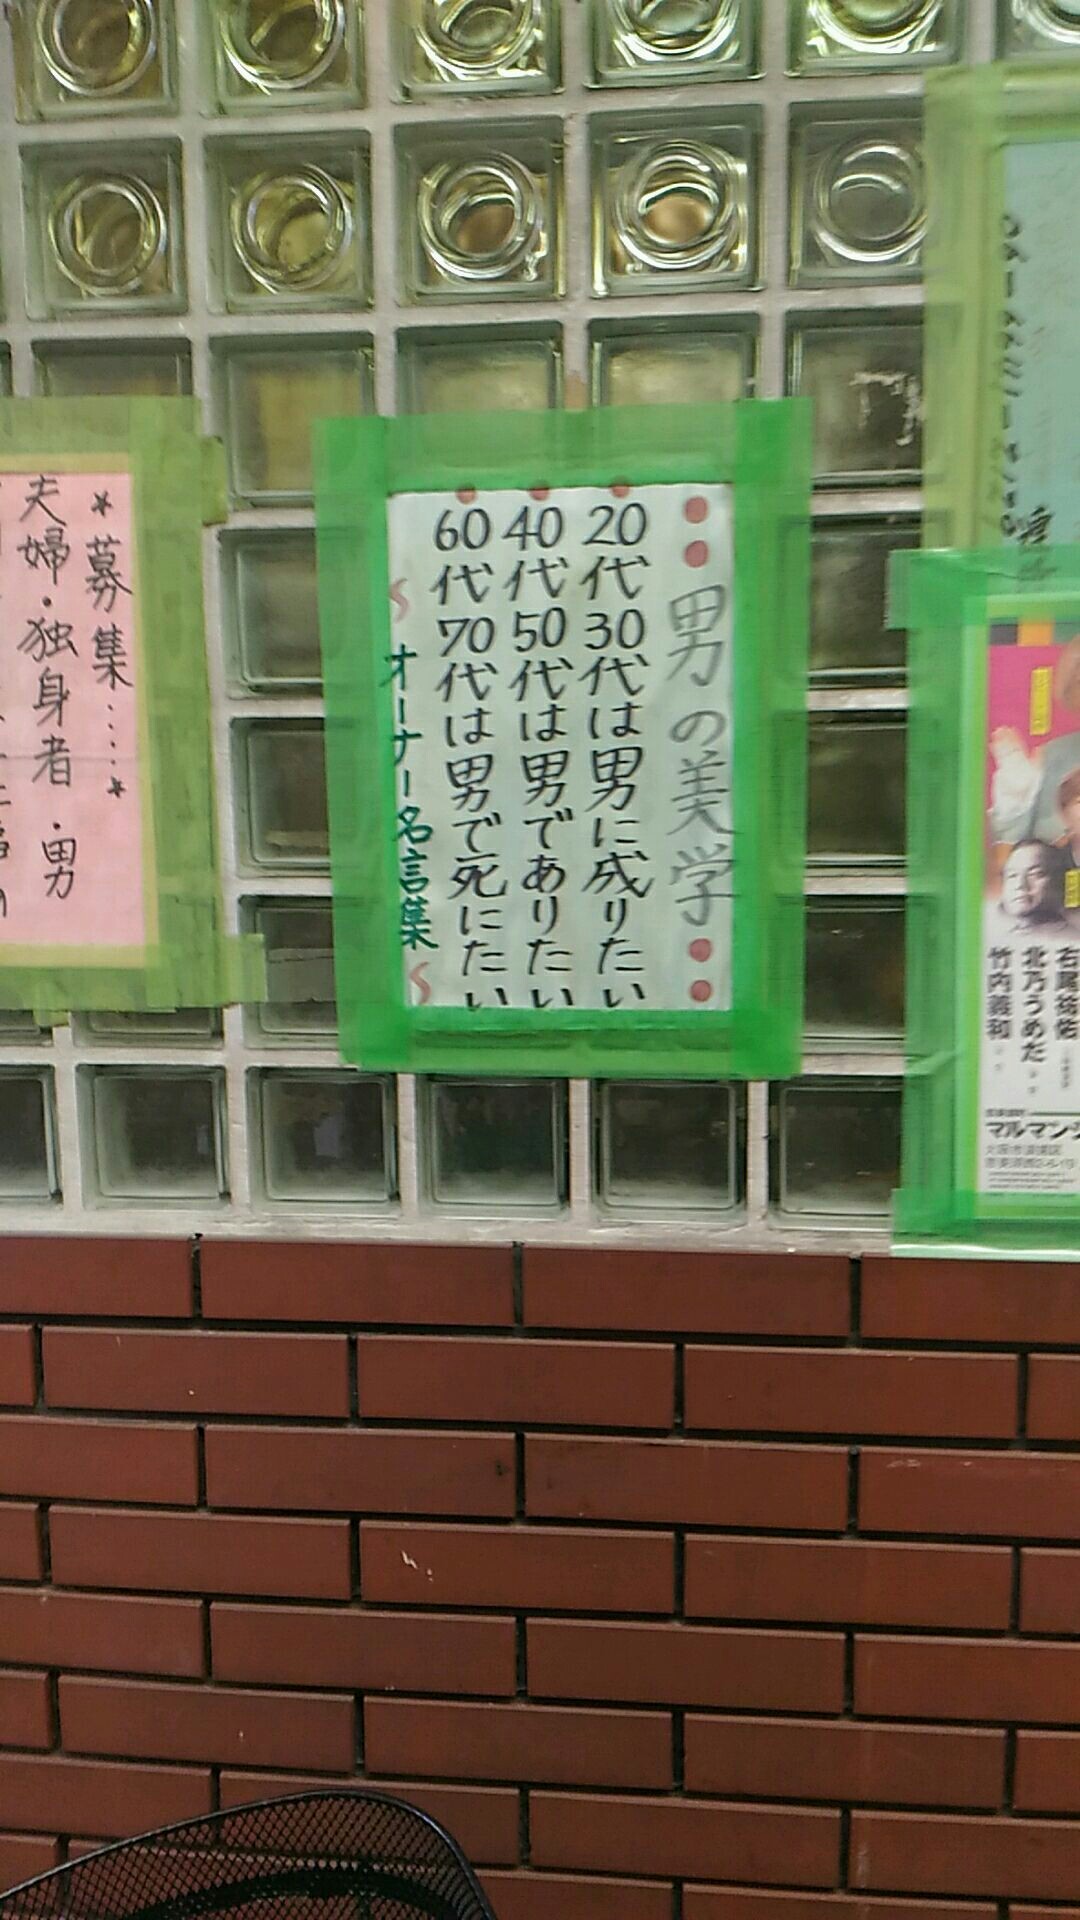 男の美学
20代30代は男に成りたい
40代50代は男でありたい
60代70代は男で死にたい
オーナー名言集
*募集....*
夫婦・独身者・男
右尾祐佑
北乃うめだ
竹内義和
マルマン